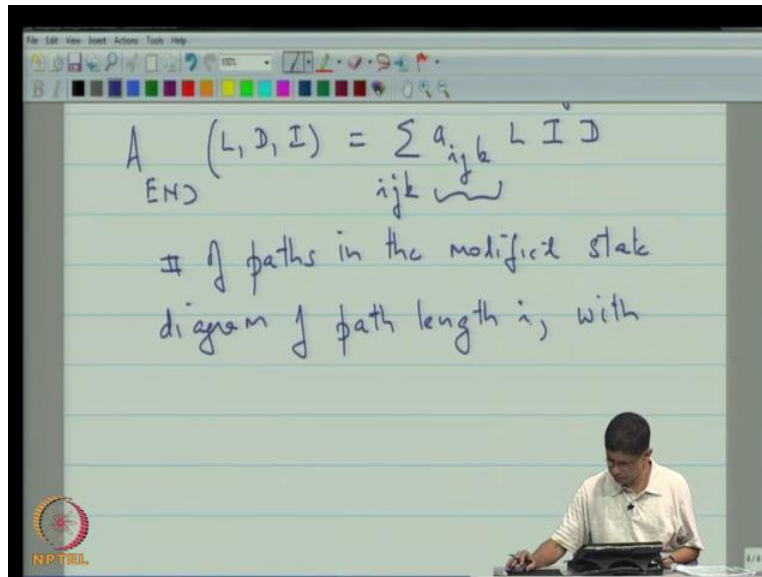 File Edit View Insert Actions Tools Help
100%
B I
A END (L, D, I) = Σ ijk a ijk L I D
# of paths in the modified state
diagram of path length i, with
NPTEL
4/4